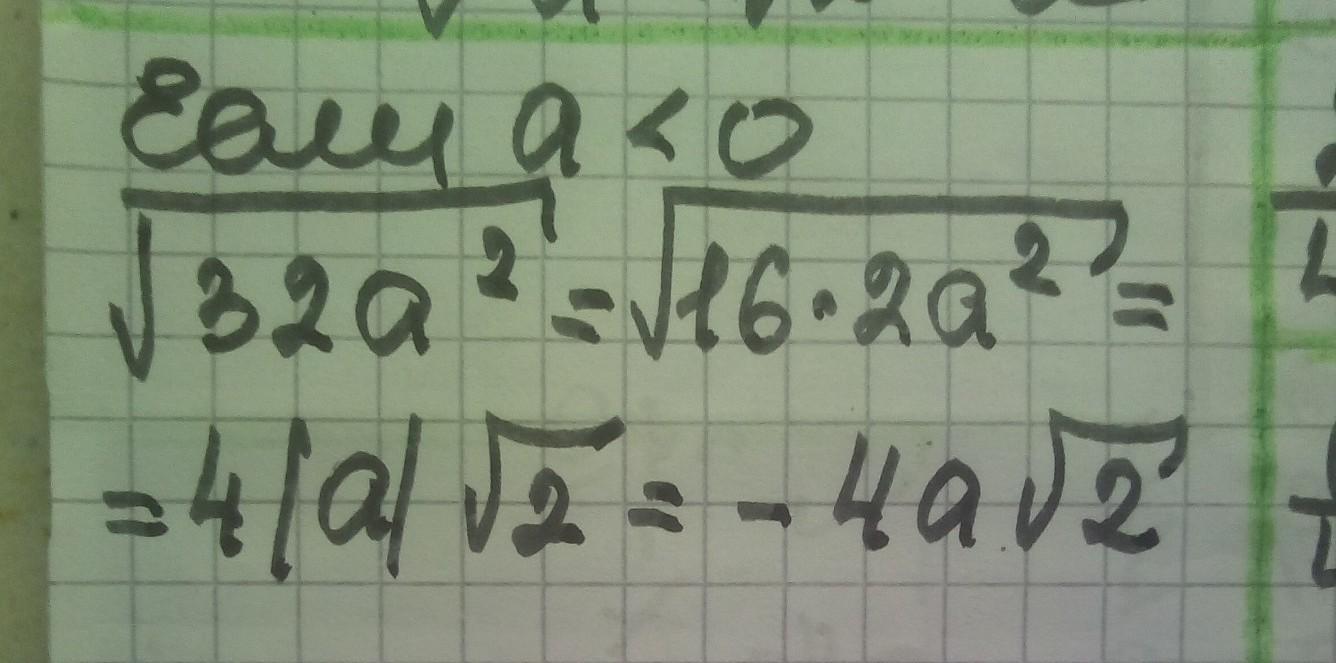 Если a < 0
√32a² = √16·2a² =
= 4|a|√2 = - 4a√2